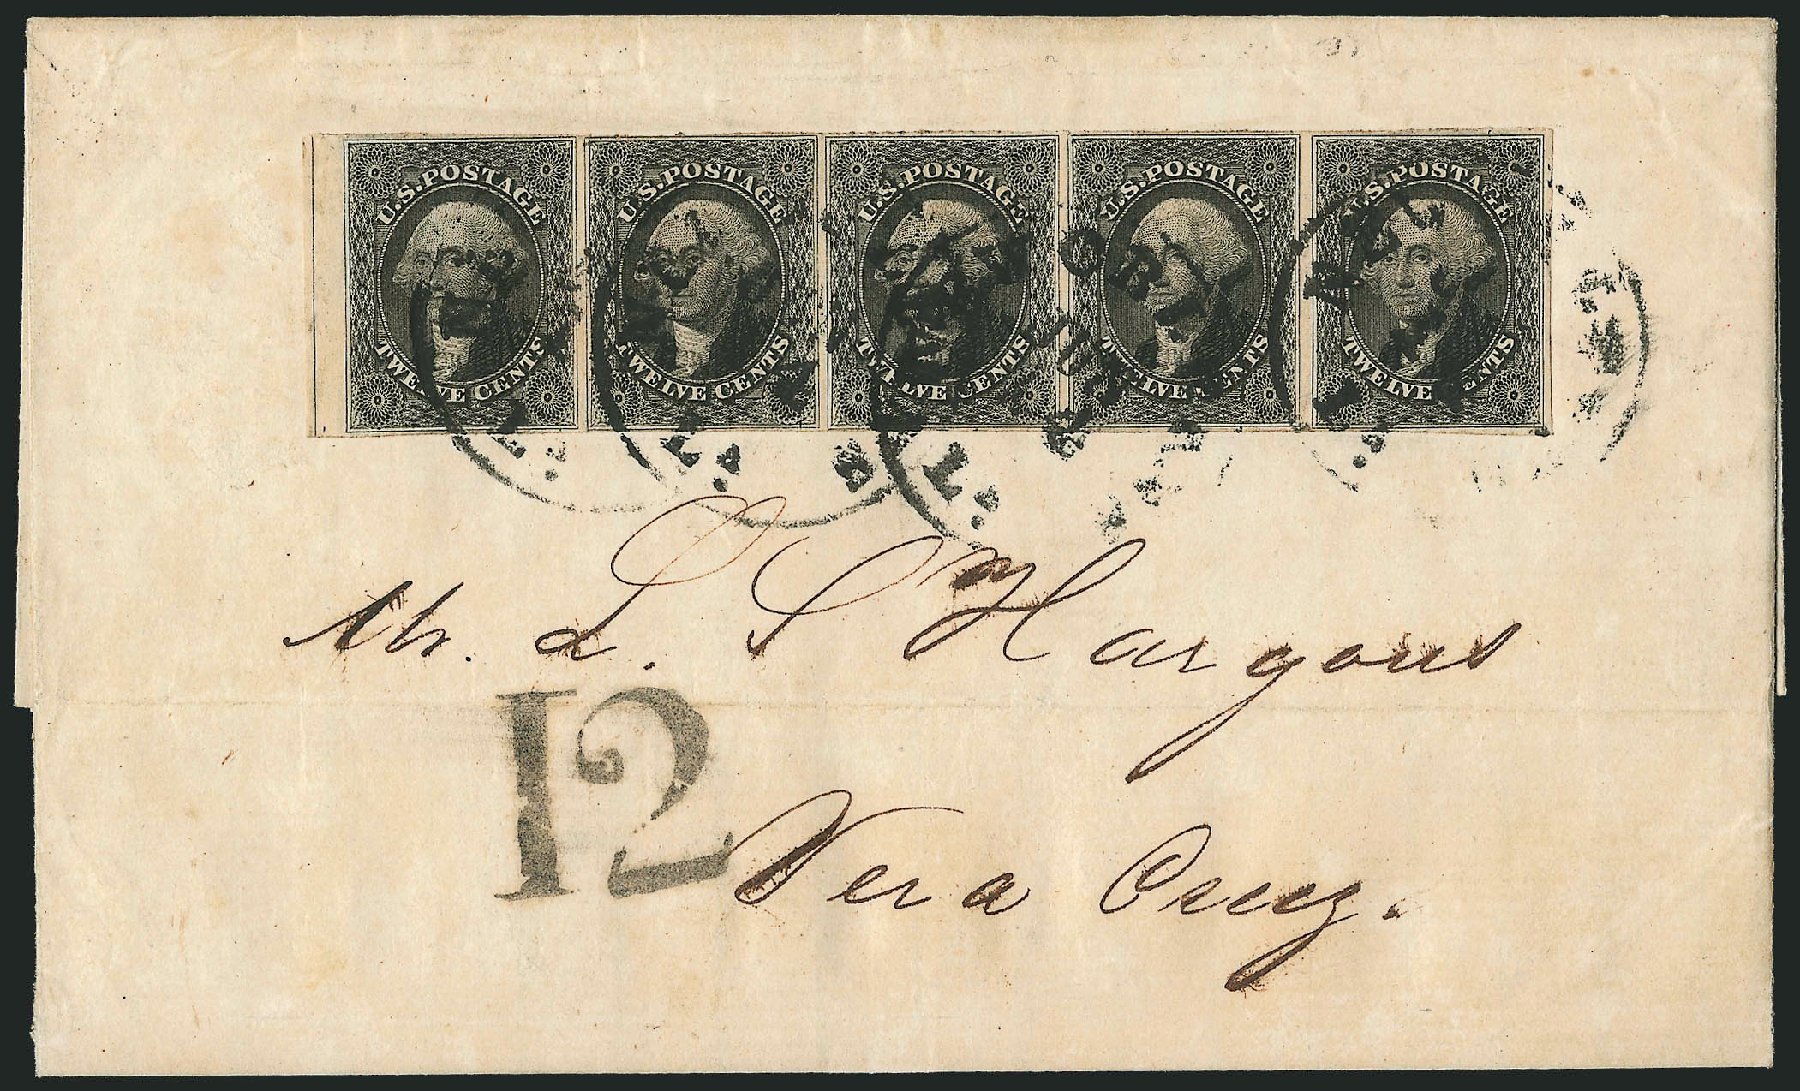 U.S. POSTAGE U.S. POSTAGE U.S. POSTAGE U.S. POSTAGE U.S. POSTAGE
TWELVE CENTS TWELVE CENTS TWELVE CENTS TWELVE CENTS TWELVE CENTS
Mr. L. S Hargous
12
Vera Cruz.